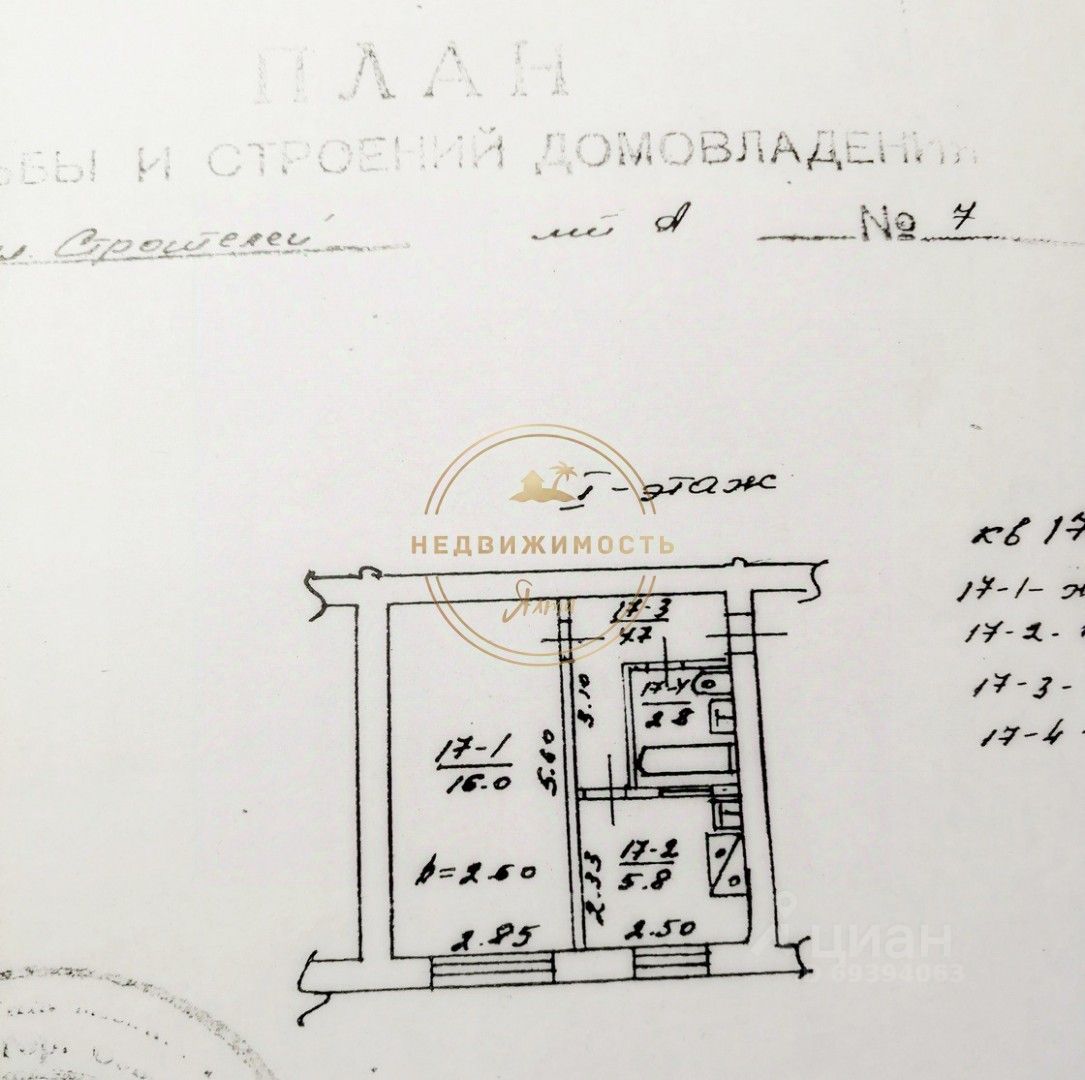 ПЛАН
ЬБЫ И СТРОЕНИЙ ДОМОВЛАДЕНИЯ
л. Строителей лит А № 7
I-этаж
НЕДВИЖИМОСТЬ
Ялта
кв 17
17-1- ж
17-2-
17-3-
17-4-
17-3
4.7
17-4
2.8
3.10
17-1
16.0
5.60
17-2
5.8
h=2.60
2.33
2.85
2.50
циан
69394063